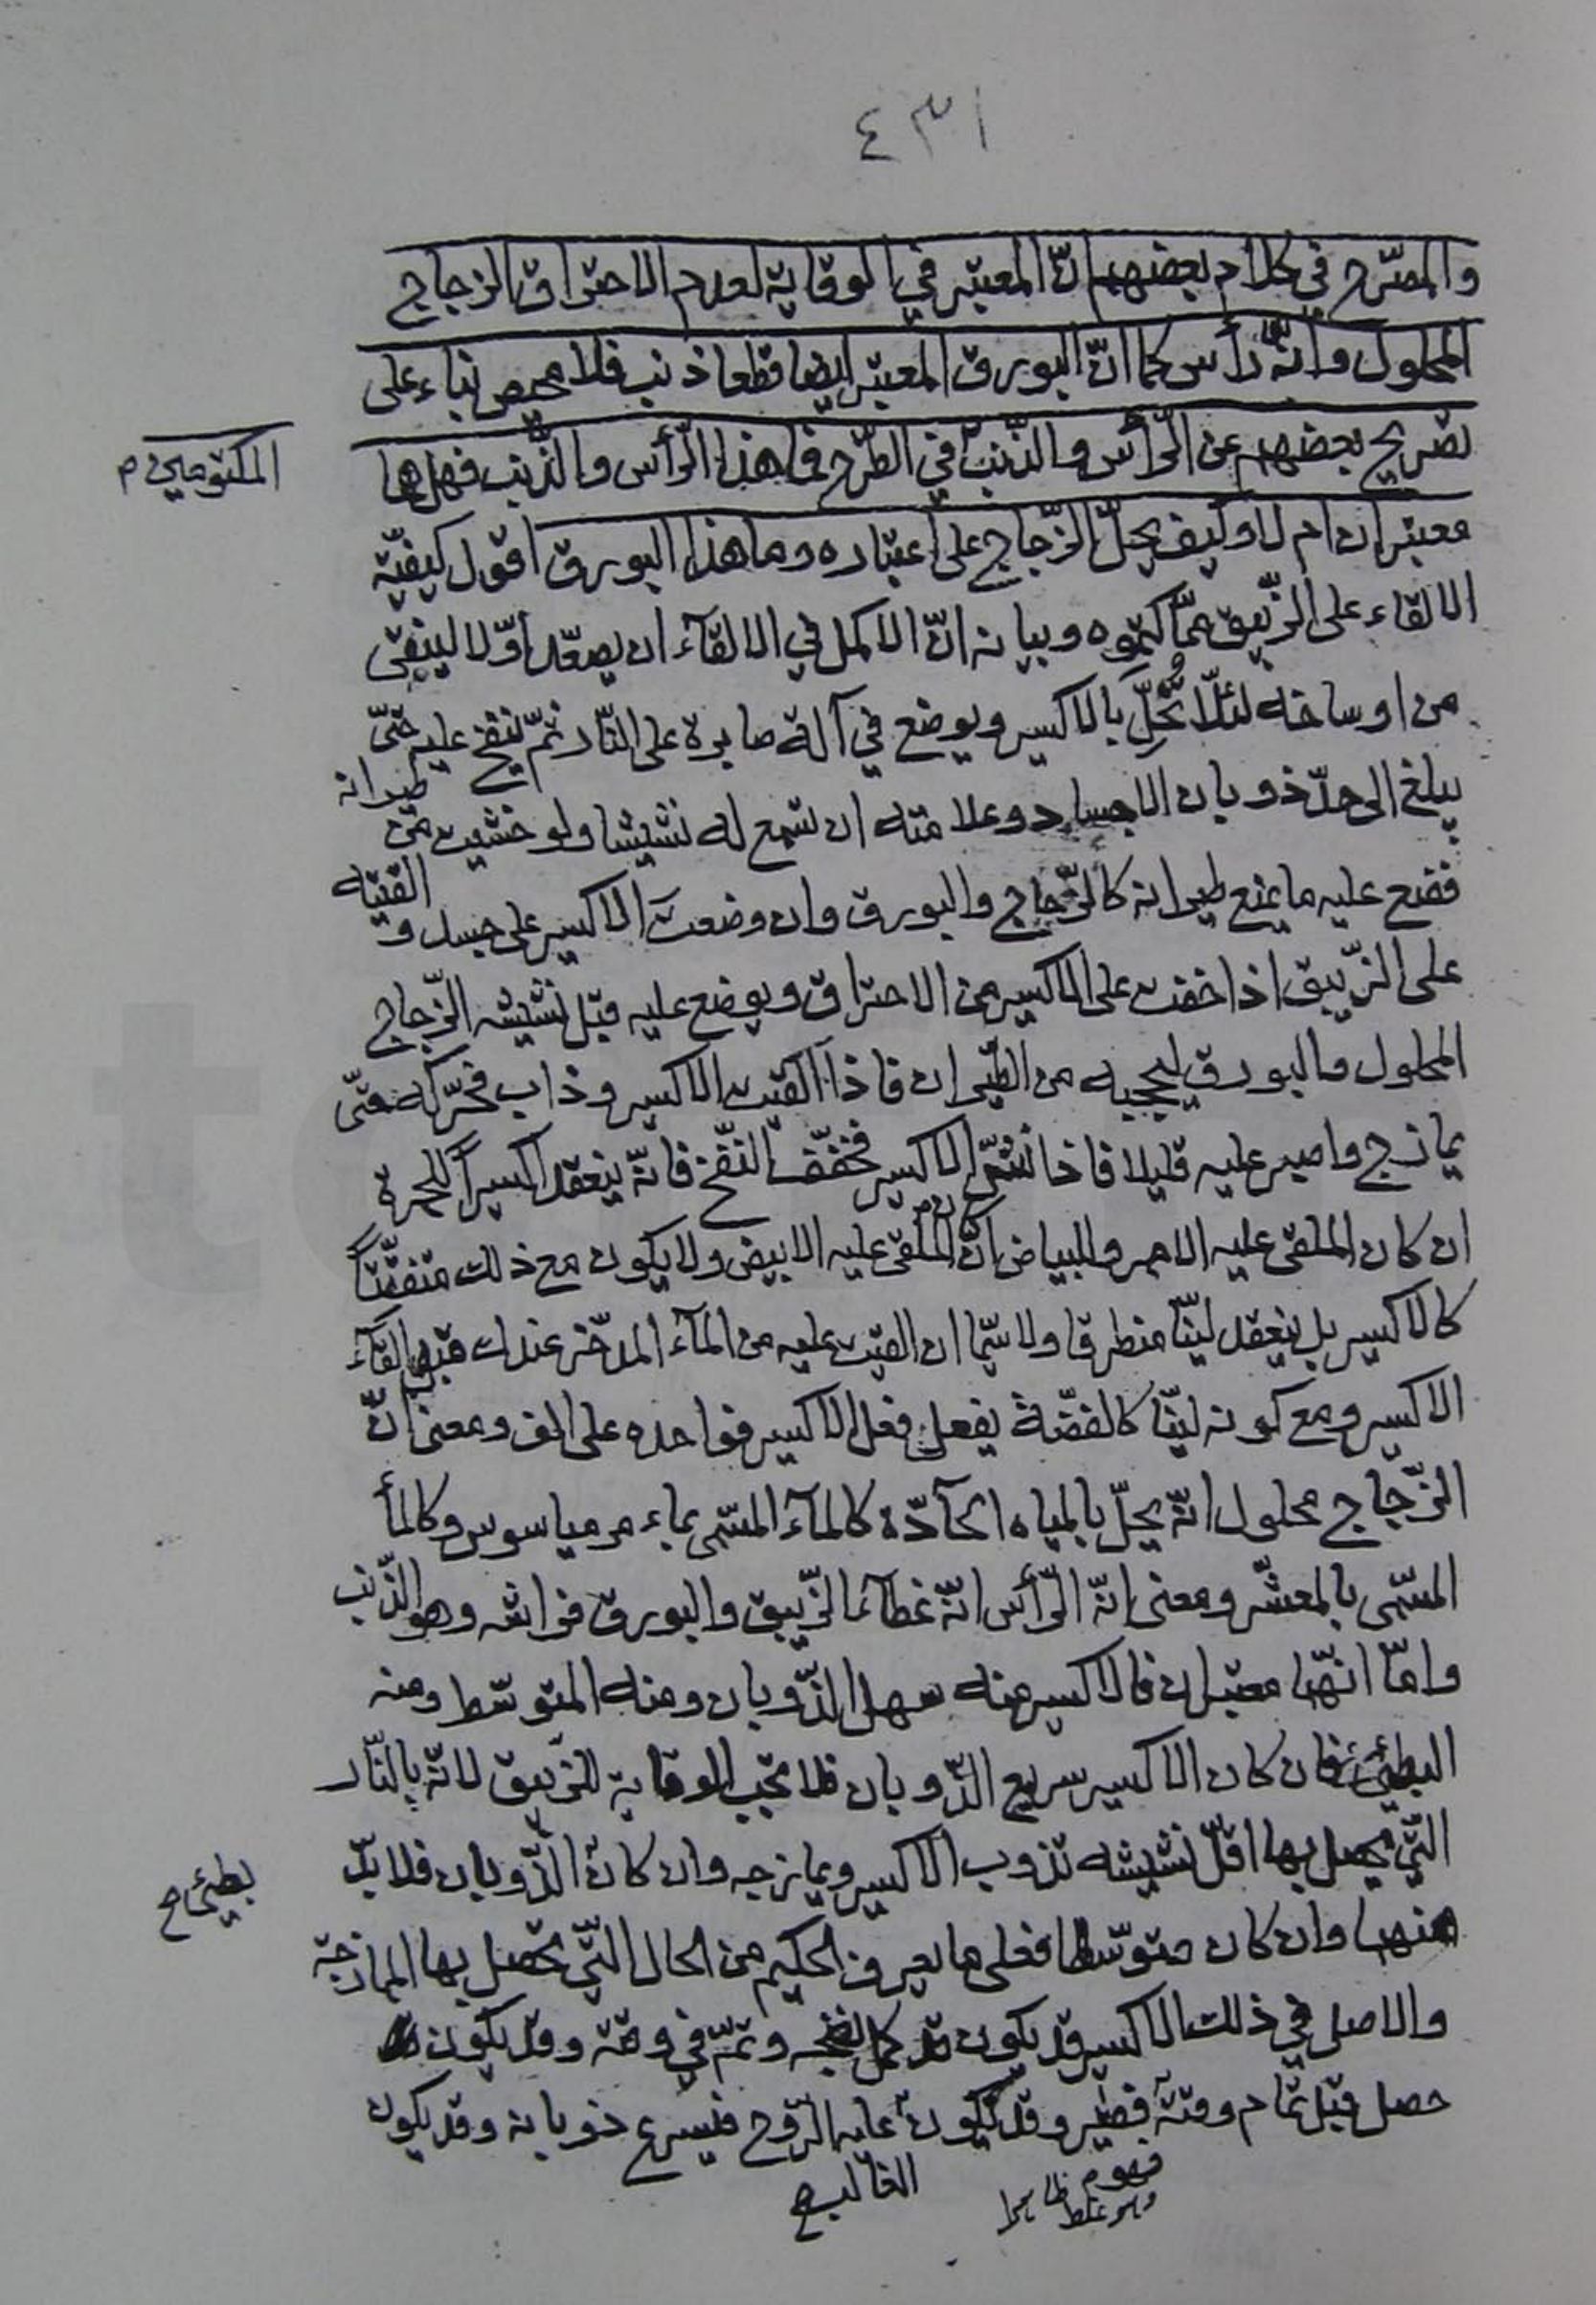 ٤٣١
والمصرّح في كلام بعضهم انّ المعتبر في الوقاية لعدم الاحتراق الزجاج
المحلول وانّه رأس كما انّ البورق المعتبر ايضا قطعا ذنب فلا محيص بناء على
تصريح بعضهم عن الرّأس والذّنب في الطّرح فما هذا الرّأس والذّنب فهل هما
المكتومين م
معتبران ام لا وكيف يحلّ الزّجاج على اعتباره وما هذا البورق اقول كيفيّة
الالقاء على الزّيبق ممّا كتموه وبيانه انّ الاكمل في الالقآء ان يصعّد اوّلا لينقى
من اوساخه لئلّا تحلّ بالاكسير ويوضع في آلة صابرة على النّار ثمّ ينفخ عليه حتّى
يبلغ الى حدّ ذوبان الاجساد وعلامته ان تسمع له نشيشا ولو خشيت من طيرانه
فضع عليه ما يمنع طيرانه كالزّجاج والبورق وان وضعت الاكسير على جسد و القيته
على الزّيبق اذا خفت على الاكسير من الاحتراق ويوضع عليه قبل نشيشه الزّجاج
المحلول والبورق ليحجبه من الطّيران فاذا القيت الاكسير وذاب فحرّكه حتّى
يمازج واصبر عليه قليلا فاذا الاكسير فخفّف النّفخ فانّه ينعقد اكسيراً للحمرة
ان كان الملقى عليه الاحمر وللبياض ان كان الملقى عليه الابيض ولا يكون مع ذلك متفتّتاً
كالاكسير بل ينعقد ليّنا منطرقا ولا سيّما ان القيت عليه من المآء المدّخر عندك قبل القآء
الاكسير ومع كونه ليّنا كالفضّة يفعل فعل الاكسير فواحده على الف ومعنى انّ
الزّجاج محلول انّه يحلّ بالمياه الحآدّة كالمآء المسمّى بماء مرمياسوس وكالمأ
المسمّى بالمعشّر ومعنى انّه الرّأس انّه غطآء الزّيبق والبورق فراشه وهو الذّنب
وامّا انّهما معتبران فالاكسير منه سهل الذّوبان ومنه المتوسّط ومنه
البطئ فان كان الاكسير سريع الذّوبان فلا تجب الوقاية للزّيبق لانّه بالنّار
الّتي يحصل بها اقلّ نشيشه تذوب الاكسير ويمازجه وان كان الذّوبان فلا بدّ
بطيئ ح
منهما وان كان متوسّطا فعلى ما يعرف الحكيم من الحال الّتي تحصل بها الممازجة
والاصل في ذلك الاكسير قد يكون قد كمل نضجه وتمّ في وقته وقد يكون
حصل قبل تمام وقته وقد يكون عليه الرّوح فيسرع ذوبانه وقد يكون
فهو م
الغالب ح
وهو غلط ظاهرا